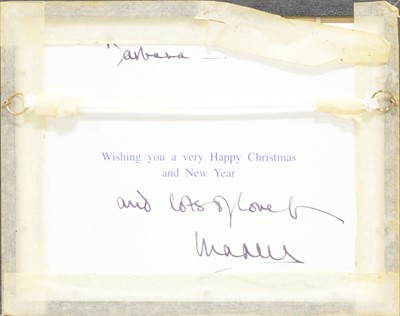 Barbara —
Wishing you a very Happy Christmas
and New Year
and lots of love